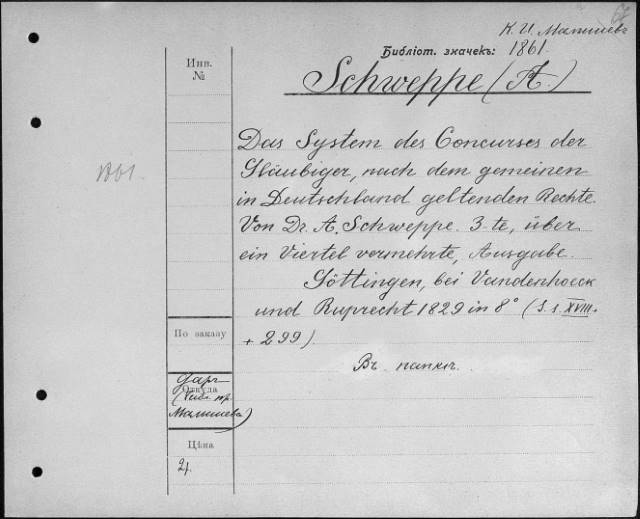 К. И. Малышевъ
Библіот. значекъ: 1861.
Инв.
№
Schweppe (A.)
1861.
Das System des Concurses der
Gläubiger, nach dem gemeinen
in Deutschland geltenden Rechte.
Von Dr. A. Schweppe. 3-te, über
ein Viertel vermehrte, Ausgabe.
Göttingen, bei Vandenhoeck
und Ruprecht 1829 in 8° (S.s. XVIII.
+ 299).
Въ папкѣ.
По заказу
Даръ
Откуда
Малышева)
Цѣна